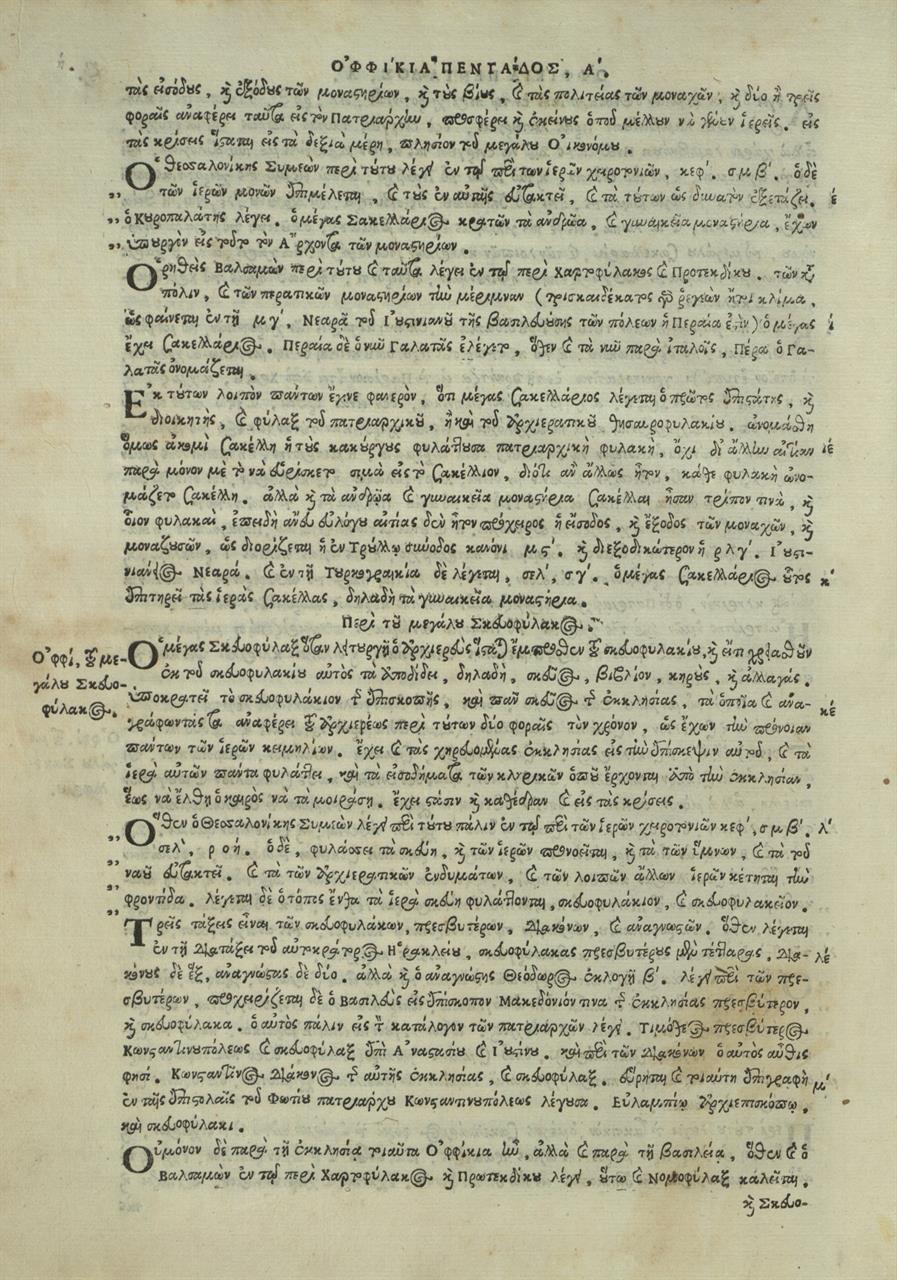 ὈΦΦΙΚΙΑ ΠΕΝΤΑΔΟΣ, Α΄.
τὰς εἰσόδους, καὶ ἐξόδους τῶν μοναστηρίων, καὶ τοὺς βίους, καὶ τὰς πολιτείας τῶν μοναχῶν, καὶ δύο ἢ τρεῖς
φοραῖς ἀναφέρει ταῦτα εἰς τὸν Πατριάρχην, προσφέρει καὶ ἐκείνους ὁποῦ μέλλουν νὰ γίνουν ἱερεῖς. εἰς
τὰς κρίσεις ἵσταται εἰς τὰ δεξιὰ μέρη, πλησίον τοῦ μεγάλου Οἰκονόμου.
Ὁ Θεσσαλονίκης Συμεὼν περὶ τούτου λέγει ἐν τῷ περὶ των ἱερῶν χειροτονιῶν, κεφ΄. σμβ΄. ὁ δὲ
„ τῶν ἱερῶν μονῶν ἐπιμέλεται, καὶ τοὺς ἐν αὐταῖς εὐτακτεῖ, καὶ τὰ τούτων ὡς δυνατὸν ἐξετάζει. έ
„ ὁ Κυροπαλάτης λέγει. ὁ μέγας Σακελλάριος κρατῶν τὰ ἀνδρῷα, καὶ γυναικεῖα μοναστήρια, ἔχων
„ ὑπουργὸν εἰς τοῦτο τὸν Ἄρχοντα τῶν μοναστηρίων.
Ὁ ῥηθεὶς Βαλσαμὼν περὶ τούτου καὶ ταῦτα λέγει ἐν τῷ περὶ Χαρτοφύλακος καὶ Πρωτεκδίκου. τῶν κατὰ
πόλιν, καὶ τῶν περατικῶν μοναστηρίων τὴν μέριμναν (τρισκαιδέκατος ῥεγεὼν ἤτοι κλίμα,
ὡς φαίνεται ἐν τῇ μγ΄. Νεαρᾷ τοῦ Ἰουστινιανοῦ τῆς βασιλευούσης τῶν πόλεων ἡ Περαία ἐστὶν) ὁ μέγας ί
ἔχει Σακελλάριος. Περαία δὲ ὁ νῦν Γαλατᾶς ἐλέγετο, ὅθεν καὶ τὰ νῦν παρὰ ἰταλοῖς, Πέρα ὁ Γα-
λατᾶς ὀνομάζεται.
Ἐκ τούτων λοιπὸν πάντων ἔγινε φανερὸν, ὅτι μέγας Σακελλάριος λέγεται ὁ πρῶτος ἐπιστάτης, καὶ
διοικητὴς, καὶ φύλαξ τοῦ πατριαρχικοῦ, ἢ καὶ τοῦ ἀρχιερατικοῦ θησαυροφυλακίου. ὠνομάσθη
ὅμως ἀκομὶ Σακέλλη ἡ τοὺς κακούργους φυλάττουσα πατριαρχικὴ φυλακὴ, ὄχι δι᾽ ἄλλην αἰτίαν ιέ
παρὰ μόνον μὲ τὸ νὰ εὑρίσκετο σιμὰ εἰς τὸ Σακέλλιον, διότι ἂν ἄλλως ἦτον, κάθε φυλακὴ ὠνο-
μάζετο Σακέλλη. ἀλλὰ καὶ τὰ ἀνδρῷα καὶ γυναικεῖα μοναστήρια Σακέλλαι ἦσαν τρόπον τινὰ, καὶ
οἷον φυλακαὶ, ἐπειδὴ ἄνευ εὐλόγου αἰτίας δὲν ἦτον πρόχειρος ἡ εἴσοδος, καὶ ἔξοδος τῶν μοναχῶν, καὶ
μοναζουσῶν, ὡς διορίζεται ἡ ἐν Τρούλλῳ σύνοδος κανόνι μς΄. καὶ διεξοδικώτερον ἡ ρλγ΄. Ἰουστι-
νιάνειος Νεαρά. καὶ ἐν τῇ Τουρκογραικίᾳ δὲ λέγεται, σελ΄, σγ΄. ὁ μέγας Σακελλάριος οὗτος κ΄
ἐπιτηρεῖ τὰς ἱερὰς Σακέλλας, δηλαδὴ τὰ γυναικεῖα μοναστήρια.
Περὶ τοῦ μεγάλου Σκευοφύλακος.
Ὀφφί, τοῦ με-
γάλου Σκευο-
φύλακος.
Ὁ μέγας Σκευοφύλαξ ὅταν λειτουργῇ ὁ Ἀρχιερεὺς ἵσταται ἔμπροσθεν τοῦ σκευοφυλακίου, καὶ εἴ τι χρειασθοῦν
ἐκ τοῦ σκευοφυλακίου αὐτὸς τὰ ἀποδίδει, δηλαδὴ, σκεῦος, βιβλίον, κηροὺς, καὶ ἀλλαγάς.
ὑποκρατεῖ τὸ σκευοφυλάκιον τῆς ἐπισκοπῆς, καὶ πᾶν σκεῦος τῆς ἐκκλησίας, τὰ ὁποῖα καὶ ἀνα- κέ
γράφωντάς τα ἀναφέρει τοῦ Ἀρχιερέως περὶ τούτων δύο φοραῖς τὸν χρόνον, ὡς ἔχων τὴν πρόνοιαν
πάντων τῶν ἱερῶν κειμηλίων. ἔχει καὶ τὰς χηρευούσας ἐκκλησίας εἰς τὴν ἐπίσκεψιν αὐτοῦ, καὶ τὰ
ἱερὰ αὐτῶν πάντα φυλάττει, καὶ τὰ εἰσοδήματα τῶν κληρικῶν ὁποῦ ἔρχονται ἀπὸ τὴν ἐκκλησίαν,
ἕως νὰ ἔλθῃ ὁ καιρὸς νὰ τὰ μοιράσῃ. ἔχει στάσιν καὶ καθέδραν καὶ εἰς τὰς κρίσεις.
„ Ὅθεν ὁ Θεσσαλονίκης Συμεὼν λέγει περὶ τούτου πάλιν ἐν τῷ περὶ τῶν ἱερῶν χειροτονιῶν κεφ΄, σμβ΄. λ΄
„ σελ΄, ροή. ὁ δὲ, φυλάσσει τὰ σκεύη, καὶ τῶν ἱερῶν προνοεῖται, καὶ τὰ τῶν ὕμνων, καὶ τὰ τοῦ
„ ναοῦ εὐτακτεῖ. καὶ τὰ τῶν ἀρχιερατικῶν ἐνδυμάτων, καὶ τῶν λοιπῶν ἄλλων ἱερῶν κέκτηται τὴν
„ φροντίδα. λέγεται δὲ ὁ τόπος ἔνθα τὰ ἱερὰ σκεύη φυλάττονται, σκευοφυλάκιον, καὶ σκευοφυλακεῖον.
Τρεῖς τάξεις εἶναι τῶν σκευοφυλάκων, πρεσβυτέρων, διακόνων, καὶ ἀναγνωστῶν. ὅθεν λέγεται
ἐν τῇ διατάξει τοῦ αὐτοκράτορος Ἡρακλείου, σκευοφύλακας πρεσβυτέρους μὲν τέτταρας, δια- λέ
κόνους δὲ ἓξ, ἀναγνώστας δὲ δύο. ἀλλὰ καὶ ὁ ἀναγνώστης Θεόδωρος ἐκλογῇ β΄. λέγει περὶ τῶν πρε-
σβυτέρων, προχειρίζεται δὲ ὁ Βασιλεὺς εἰς ἐπίσκοπον Μακεδόνιόν τινα τῆς ἐκκλησίας πρεσβύτερον,
καὶ σκευοφύλακα. ὁ αὐτὸς πάλιν εἰς τὸν κατάλογον τῶν πατριαρχῶν λέγει. Τιμόθεος πρεσβύτερος
Κωνσταντινουπόλεως καὶ σκευοφύλαξ ἐπὶ Ἀναστασίου καὶ Ἰουστίνου. καὶ περὶ τῶν διακόνων ὁ αὐτὸς αὖθις
φησί. Κωνσταντῖνος διάκονος τῆς αὐτῆς ἐκκλησίας, καὶ σκευοφύλαξ. εὕρηται καὶ τοιαύτη ἐπιγραφὴ μ΄
ἐν ταῖς ἐπιστολαῖς τοῦ Φωτίου πατριάρχου Κωνσταντινουπόλεως λέγουσα. Εὐλαμπίῳ Ἀρχιεπισκόπῳ,
καὶ σκευοφύλακι.
Οὐ μόνον δὲ παρὰ τῇ ἐκκλησίᾳ τοιαῦτα Ὀφφίκια ἦν, ἀλλὰ καὶ παρὰ τῇ βασιλείᾳ, ὅθεν καὶ ὁ
Βαλσαμὼν ἐν τῷ περὶ Χαρτοφύλακος καὶ Πρωτεκδίκου λέγει, οὕτω καὶ Νομοφύλαξ καλεῖται,
καὶ Σκευο-